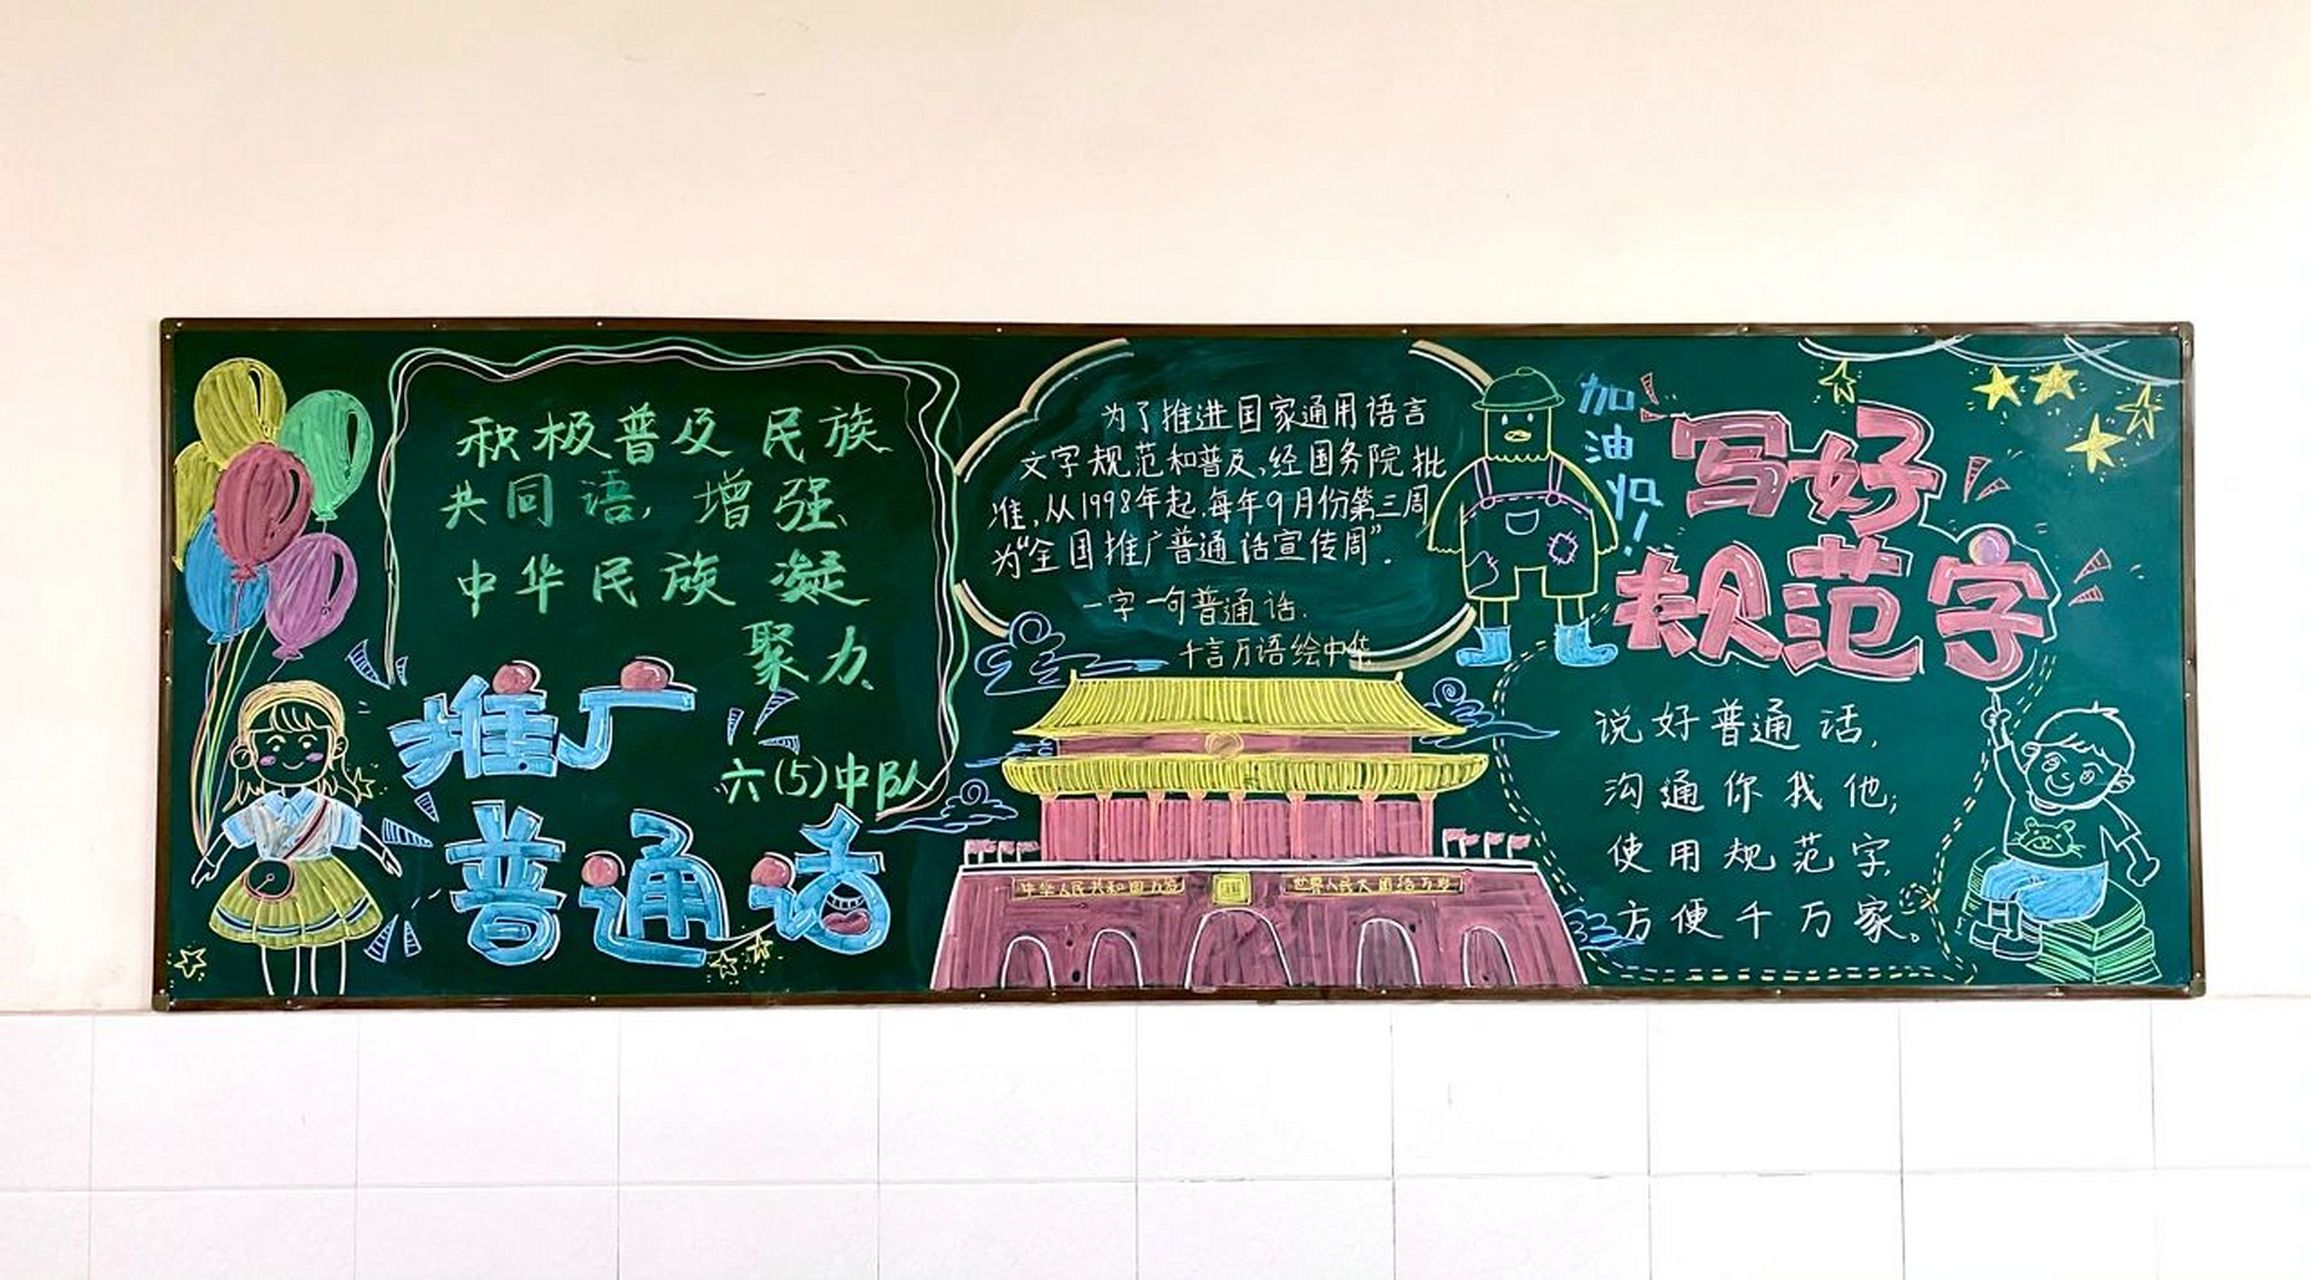 积极普及民族
共同语,增强
中华民族凝
聚力
推广
六(5)中队
普通话
为了推进国家通用语言
文字规范和普及,经国务院批
准,从1998年起,每年9月份第三周
为“全国推广普通话宣传周”.
一字一句普通话.
千言万语绘中华
中华人民共和国万岁
世界人民大团结万岁
加
油
ya!
写好
规范字
说好普通话,
沟通你我他;
使用规范字
方便千万家。